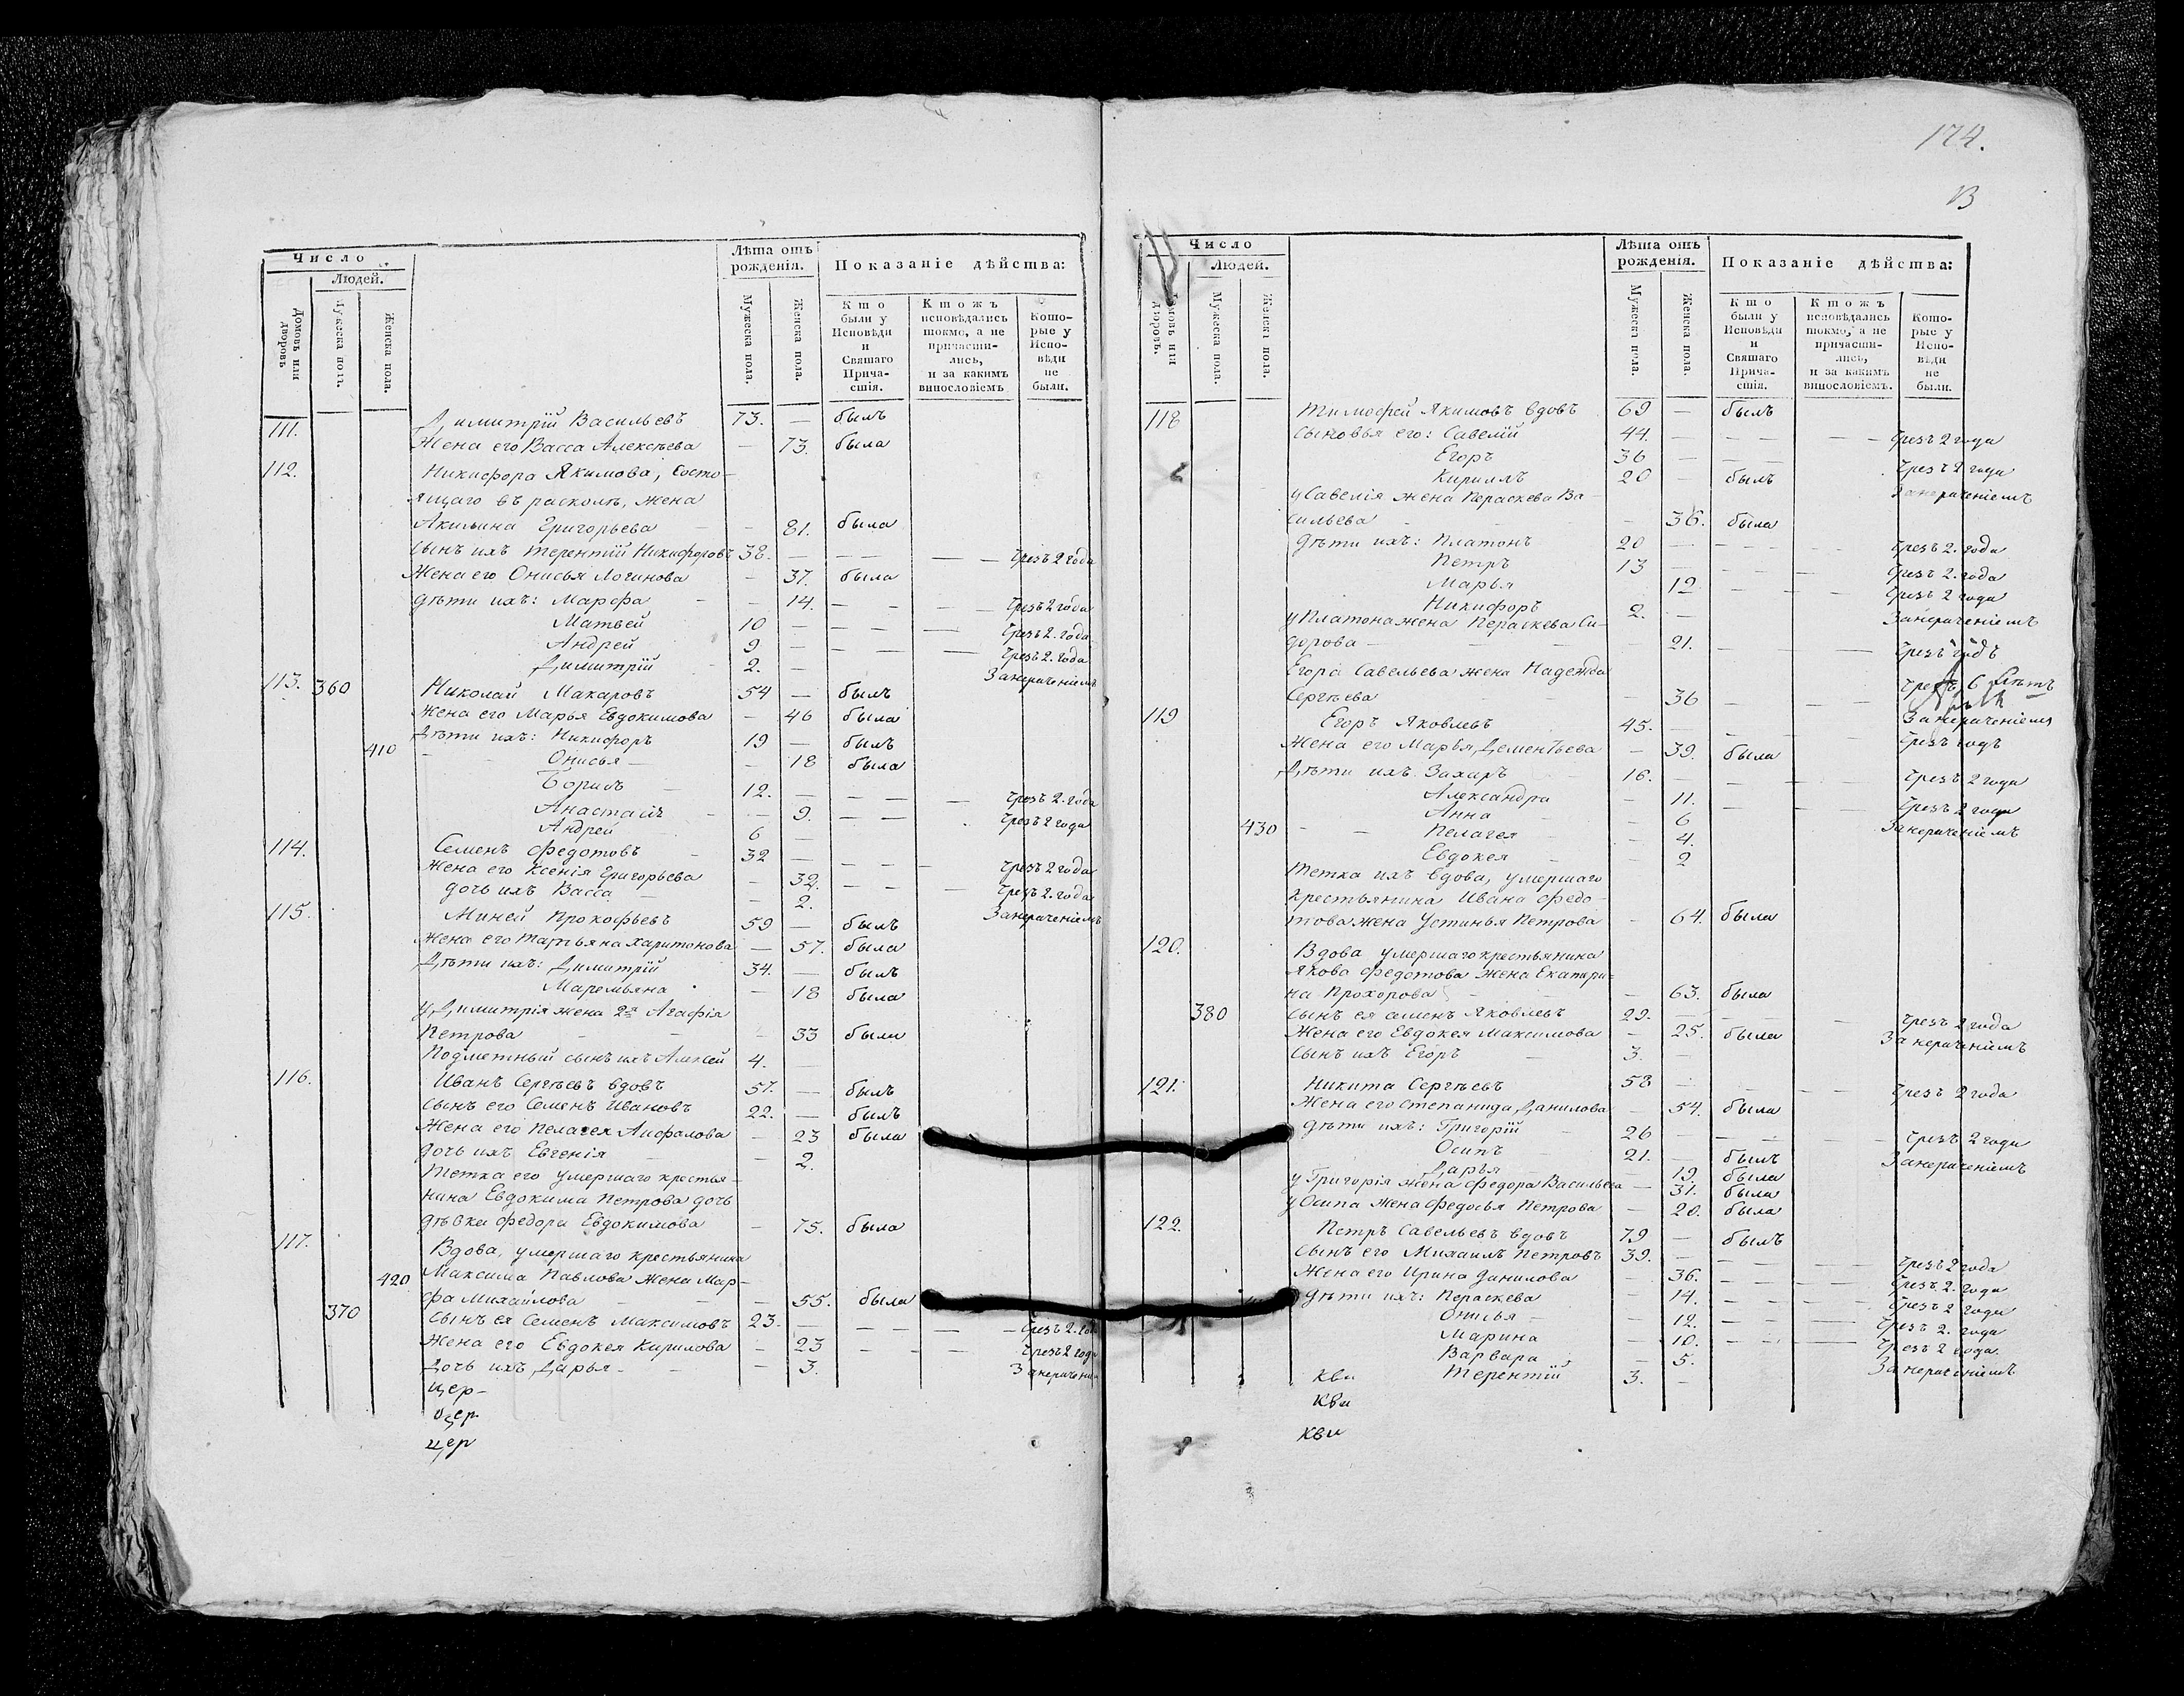 174.
В
Число
Людей.
Домовъ или дворовъ
Мужеска пола.
Женска пола.
Лѣта отъ рожденія.
Мужеска пола.
Женска пола.
Показаніе дѣйства:
Кто были у Исповѣди и Святаго Причастія.
Ктожъ исповѣдались токмо, а не причастились, и за какимъ винословіемъ
Которые у Исповѣди не были.
111. Димитрій Васильевъ 73. — былъ
Жена его Васса Алексѣева — 73. была
112. Никифора Якимова, состо-
ящаго въ расколѣ, жена
Акилина Григорьева — 81. была
сынъ ихъ Терентій Никифоровъ 38. — — — чрезъ 2 года
Жена его Онисья Логинова — 37. была
дѣти ихъ: Марфа — 14. — — чрезъ 2 года
Матвей 10 — — — чрезъ 2. года
Андрей 9 — — — чрезъ 2. года
Димитрій 2. — Занерачениемъ
113. 360 Николай Макаровъ 54 — былъ
Жена его Марья Евдокимова — 46 была
410 Дѣти ихъ: Никифоръ 19 — былъ
Онисья — — 18 была
Борисъ 12. — — — чрезъ 2. года
Анастасія — 9. — — чрезъ 2 года
Андрей 6 —
114. Семенъ Федотовъ 32 — — — чрезъ 2 года
Жена его Ксенія Григорьева — 32. — — чрезъ 2. года
дочь ихъ Васса — 2. Занерачениемъ
115. Миней Прокофьевъ 59 — былъ
Жена его Татьяна Харитонова — 57. была
Дѣти ихъ: Димитрій 34. — былъ
Маремьяна — 18 была
у Димитрія жена 2я Агафія
Петрова — 33 была
Подметный сынъ ихъ Алексей 4. —
116. Иванъ Сергѣевъ вдовъ 57. — былъ
Сынъ его Семенъ Ивановъ 22. — былъ
Жена его Пелагея Анфалова — 23 была
дочь ихъ Евгенія — 2.
Тетка его умершаго крестья-
нина Евдокима Петрова дочь
дѣвка Федора Евдокимова — 75. была
117. Вдова, умершаго крестьянина
420 Максима Павлова жена Мар-
фа Михайлова — — 55. была
370 Сынъ ея Семенъ Максимовъ 23. — — — чрезъ 2. года
Жена его Евдокея Кирилова — 23 — — чрезъ 2 года
Дочь ихъ Дарья — — 3. Занерачение
цер-
цер
цер
Число
Людей.
Домовъ или дворовъ.
Мужеска пола.
Женска пола.
Лѣта отъ рожденія.
Мужеска пола.
Женска пола.
Показаніе дѣйства:
Кто были у Исповѣди и Святаго Причастія.
Ктожъ исповѣдались токмо, а не причастились, и за какимъ винословіемъ.
Которые у Исповѣди не были.
118 Тимофей Якимовъ вдовъ 69 — былъ
Сыновья его: Савелій 44. — — — чрезъ 2 года
Егоръ 36 — — чрезъ 2 года
Кириллъ 20 — былъ Занерачениемъ
у Савелія жена Пераскева Ва-
сильева — 36. была
Дѣти ихъ: Платонъ 20 — — — чрезъ 2. года
Петръ 13 — — — чрезъ 2. года
Марья 12 — — чрезъ 2 года
Никифоръ 2. — Занерачениемъ
у Платона жена Пераскева Си-
дорова — — 21. — — чрезъ годъ
Егора Савельева жена Надежда чрезъ 6 лѣтъ
Сергѣева — 36 — — Занерачениемъ
119 Егоръ Яковлевъ 45. — — — чрезъ годъ
Жена его Марья Дементьева — 39. была
Дѣти ихъ Захаръ 16. — — — чрезъ 2 года
Александра — 11. — — чрезъ 2 года
Анна — 6 Занерачениемъ
430 — — Пелагея — 4.
Евдокея — 2
Тетка ихъ вдова, умершаго
крестьянина Ивана Федо-
това жена Устинья Петрова — 64. была
120. Вдова умершаго крестьянина
Якова Федотова жена Екатери-
на Прохорова — 63. была
380 Сынъ ея Семенъ Яковлевъ 29. — — — чрезъ 2 года
Жена его Евдокея Максимова — 25. была Занерачениемъ
Сынъ ихъ Егоръ 3. —
121. Никита Сергѣевъ 58 — — — чрезъ 2 года
Жена его Степанида Данилова — 54. была
Дѣти ихъ: Григорій 26 — — — чрезъ 2 года
Осипъ — 21. — былъ Занерачениемъ
Дарья — 19. была
у Григорія жена Федора Васильева — 31. была
у Осипа жена Федосья Петрова — 20. была
122. Петръ Савельевъ вдовъ 79 — былъ
Сынъ его Михаилъ Петровъ 39. — — — чрезъ 2 года
Жена его Ирина Данилова — 36. — — чрезъ 2. года
Дѣти ихъ: Пераскева — 14. — — чрезъ 2 года
Онисья — — 12. — — чрезъ 2. года
Марина — 10. — — чрезъ 2 года.
Варвара — 5. Занерачениемъ
кви Терентій 3. —
кви
кви